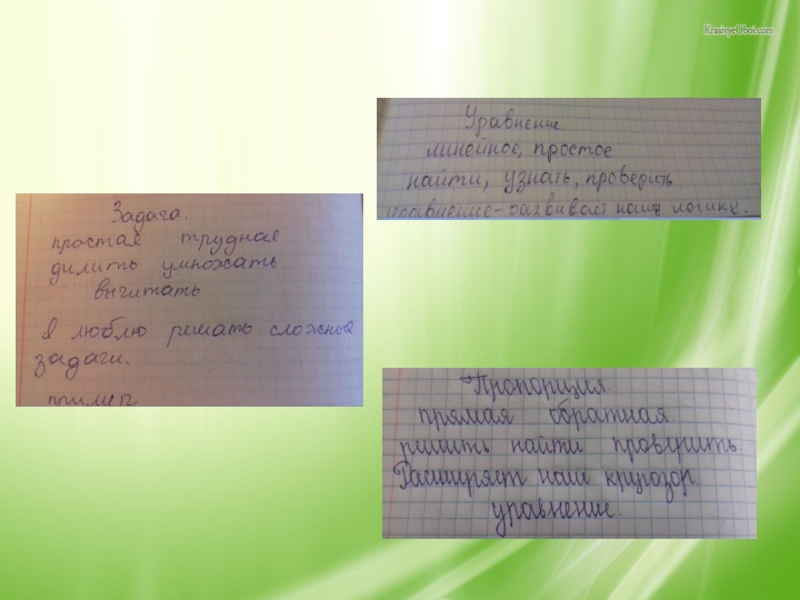 KrasivyeOboi.com
Уравнение
линейное, простое
найти, узнать, проверить
уравнение-развивает нашу логику.
Задача.
простая трудная
дилить умножать
вычитать
Я люблю решать сложные
задачи.
пример
Пропорция
прямая обратная.
решить найти проверить.
Расширяет наш кругозор
уравнение.